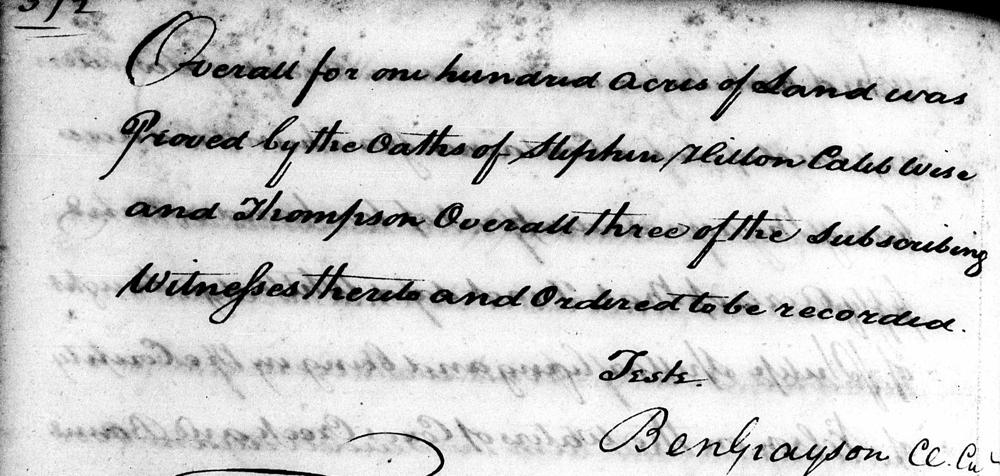 Overall for one hundred acres of Land was
Proved by the Oaths of Stephen Hilton Caleb Wise
and Thompson Overall three of the Subscribing
Witnesses thereto and Ordered to be recorded.
Teste.
Ben Grayson CC. Cur